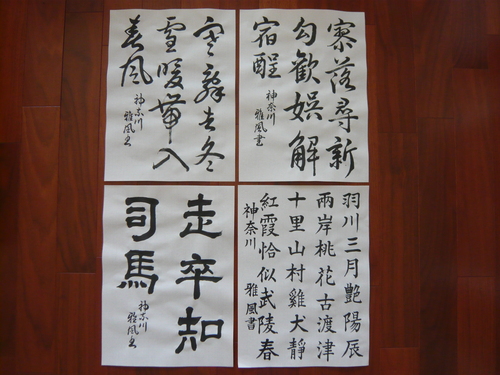 寥落尋新
勾歡娯解
宿酲
神奈川
雅風書
寒辭去冬
雪暖帶入
春風
神奈川
雅風書
羽川三月艷陽辰
兩岸桃花古渡津
十里山村雞犬靜
紅霞恰似武陵春
神奈川 雅風書
走卒知
司馬
神奈川
雅風書